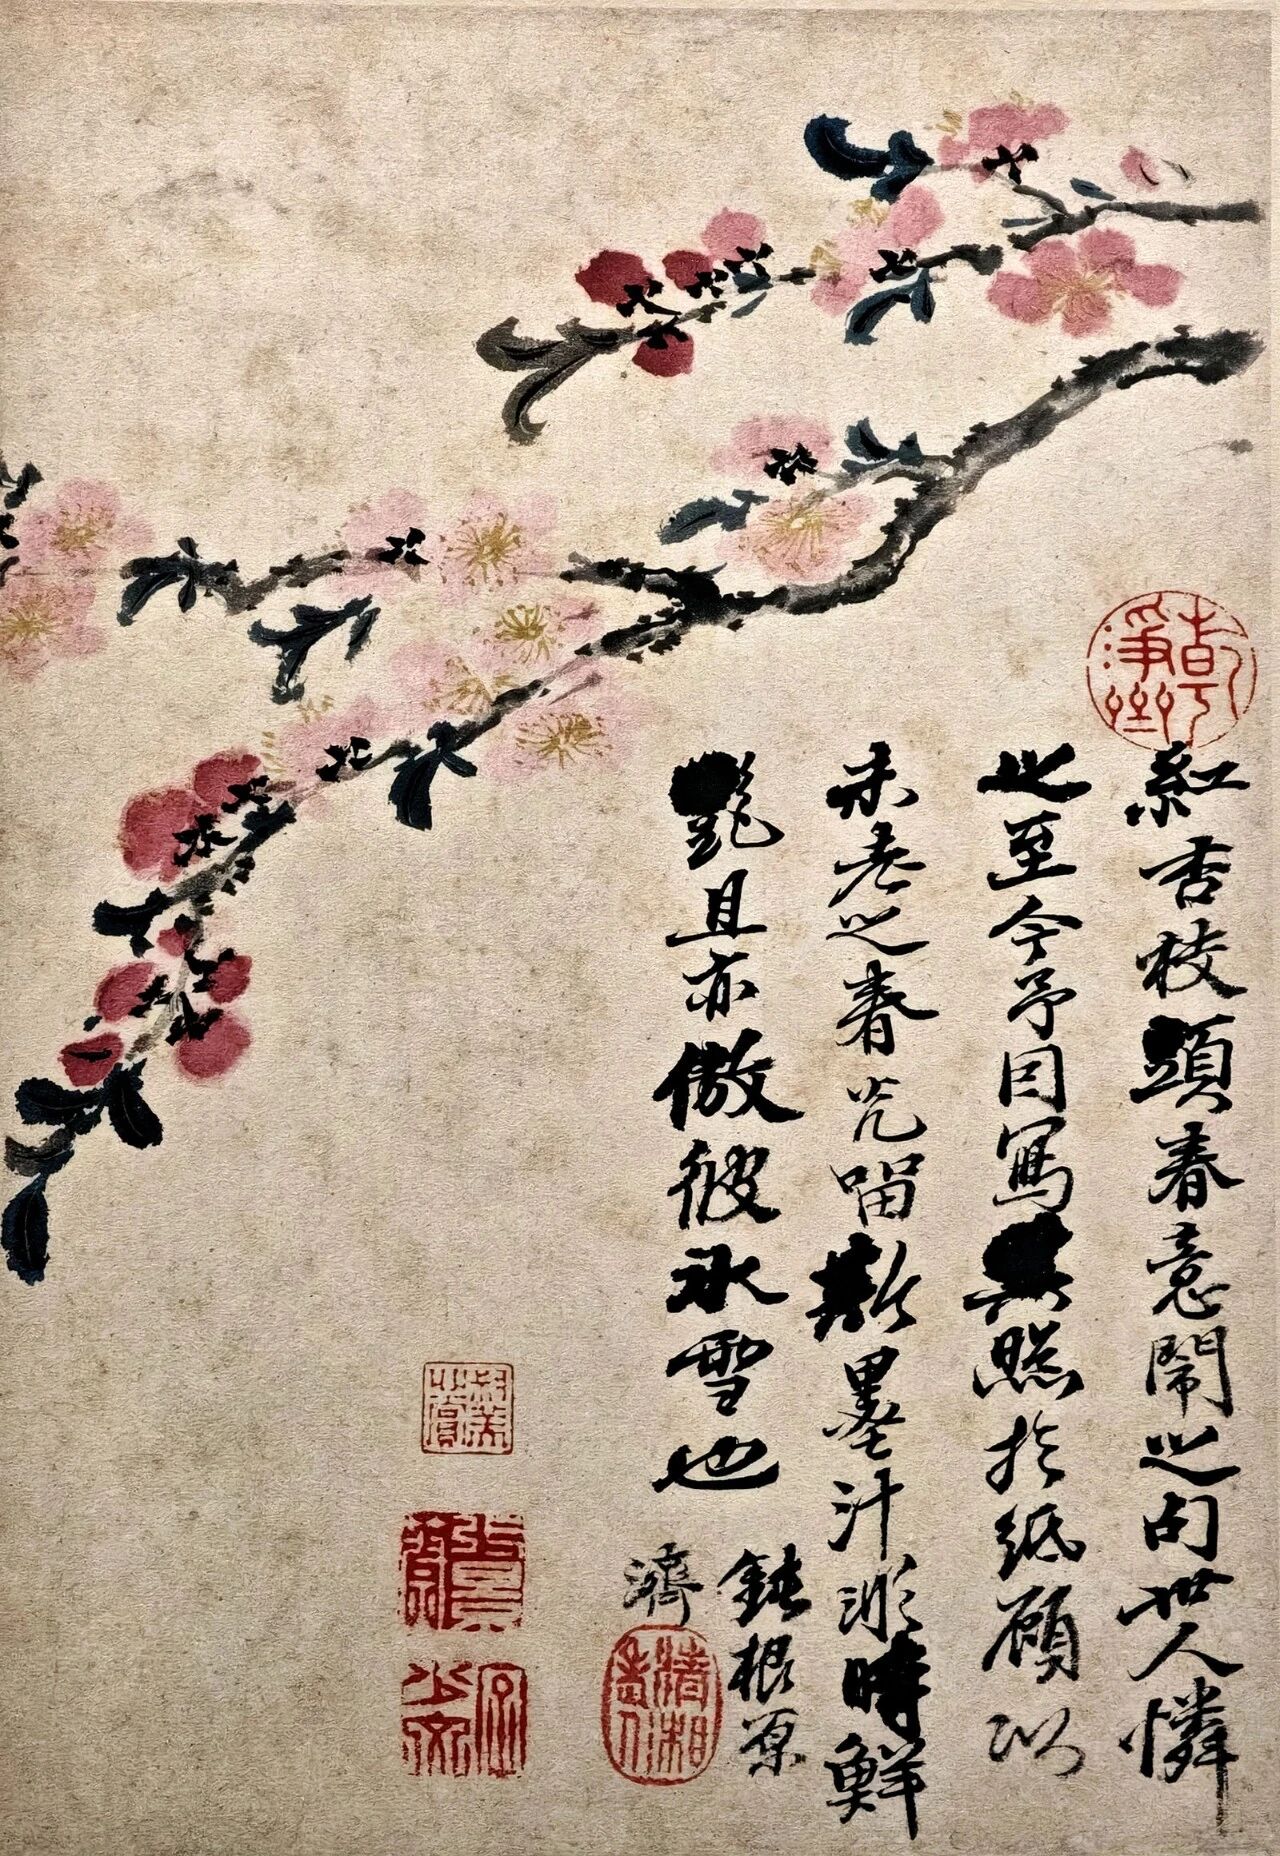 紅杏枝頭春意鬧之句世人憐
此至今予因寫其照於紙顧以
未老之春光留斯墨汁時鮮
艷且亦傲彼冰雪也
鈍根原
濟
清湘老人